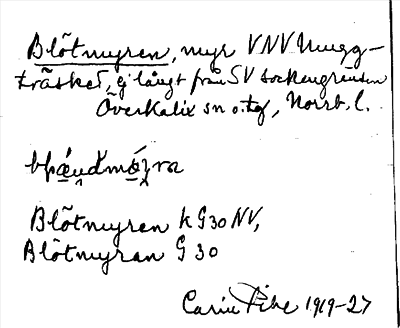 Blötmyren, myr VNV Mugg-
träsket, ej långt från SV sockengränsen
Överkalix sn o. tg, Norrb. l.
Blötmyren k G30 NV,
Blötmyran G 30
Carin Pihl 1919-27